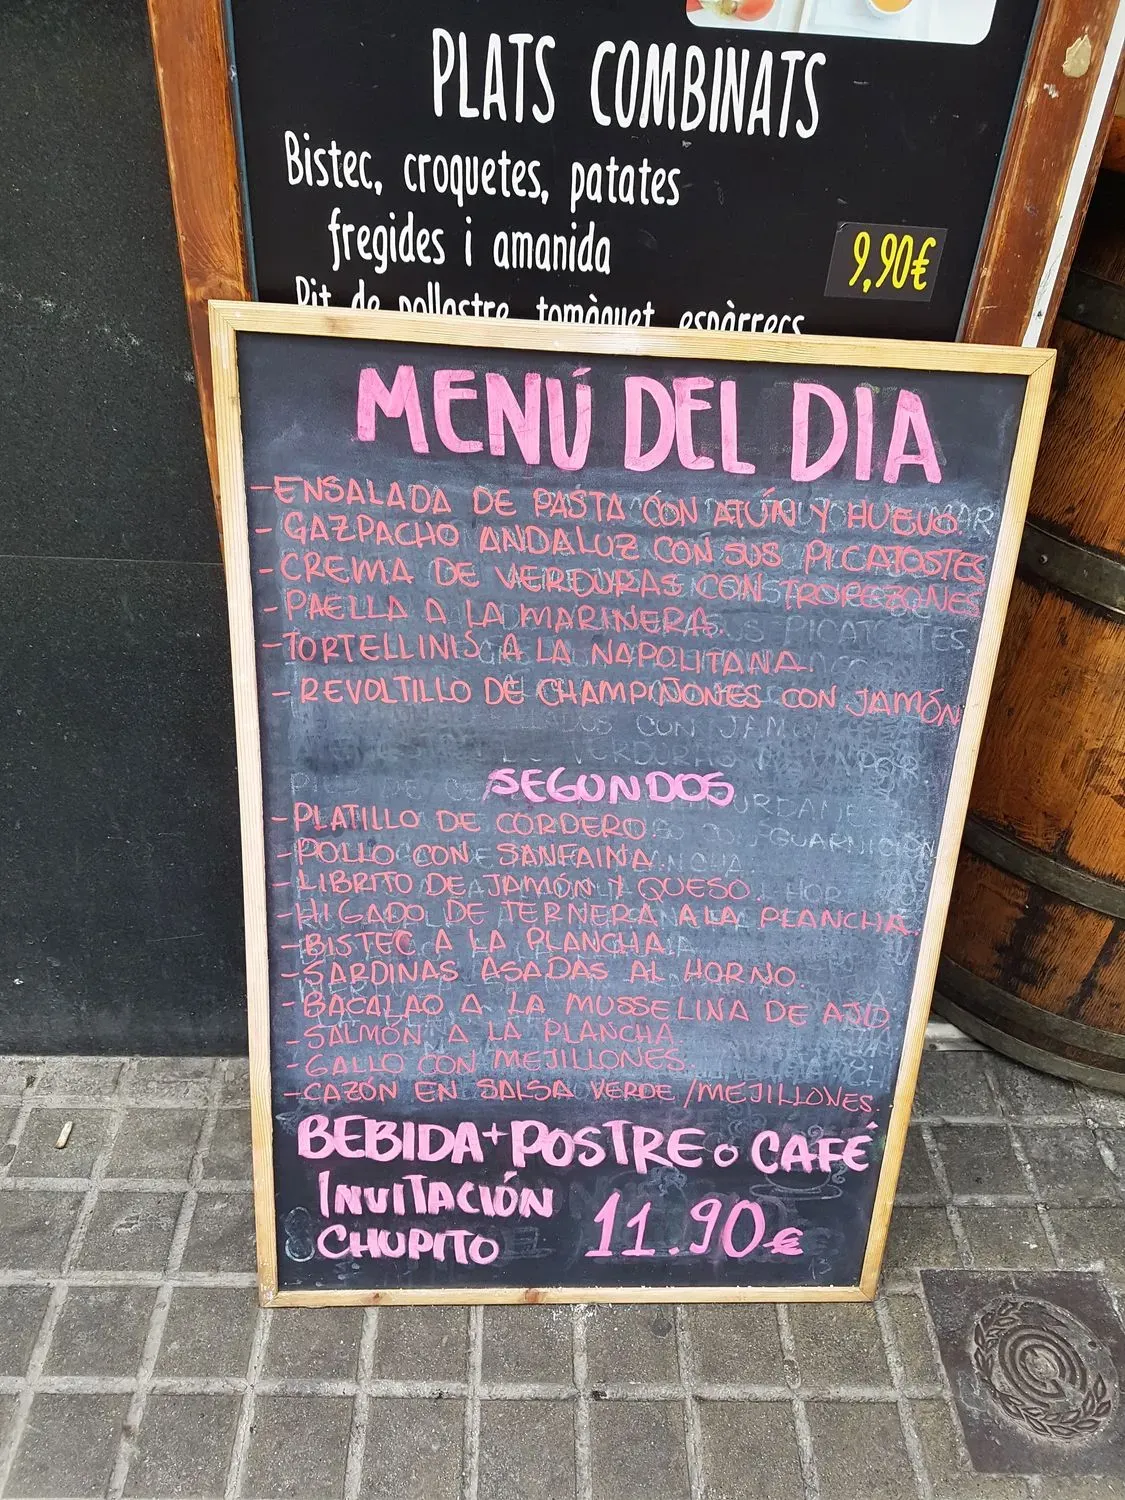 PLATS COMBINATS
Bistec, croquetes, patates
fregides i amanida
9,90€
Pit de pollastre, tomàquet, espàrrecs
MENÚ DEL DIA
-ENSALADA DE PASTA CON ATÚN Y HUEVO.
- GAZPACHO ANDALUZ CON SUS PICATOSTES
-CREMA DE VERDURAS CON TROPEZONES
-PAELLA A LA MARINERA.
-TORTELLINIS A LA NAPOLITANA.
- REVOLTILLO DE CHAMPIÑONES CON JAMÓN
SEGUNDOS
-PLATILLO DE CORDERO.
-POLLO CON SANFAINA.
-LIBRITO DE JAMÓN Y QUESO.
-HIGADO DE TERNERA A LA PLANCHA.
-BISTEC A LA PLANCHA.
-SARDINAS ASADAS AL HORNO.
-BACALAO A LA MUSSELINA DE AJO.
-SALMÓN A LA PLANCHA.
-GALLO CON MEJILLONES.
-CAZÓN EN SALSA VERDE/MEJILLONES.
BEBIDA+POSTRE o CAFÉ
INVITACIÓN
CHUPITO
11.90€